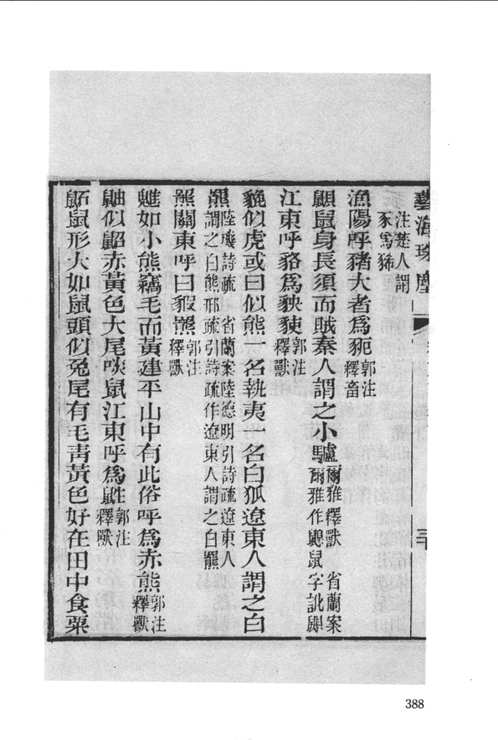 藝海珠塵
注楚人謂
豕爲豨
漁陽呼豬大者爲豝郭注
釋畜
鼳鼠身長須而賊秦人謂之小驢爾雅釋獸 省蘭案
爾雅作鼳鼠字訛
江東呼貉爲郭注
釋獸
貔似虎或曰似熊一名執夷一名白狐遼東人謂之白
羆陸璣詩疏 省蘭案陸德明引詩疏遼東人
謂之白熊邢疏引詩疏作遼東人謂之白羆
羆關東呼曰豭羆郭注
釋獸
魋如小熊竊毛而黃建平山中有此俗呼爲赤熊郭注
釋獸
鼬似鼦赤黃色大尾啖鼠江東呼爲鼪郭注
釋獸
鼫鼠形大如鼠頭似兔尾有毛青黃色好在田中食粟
388